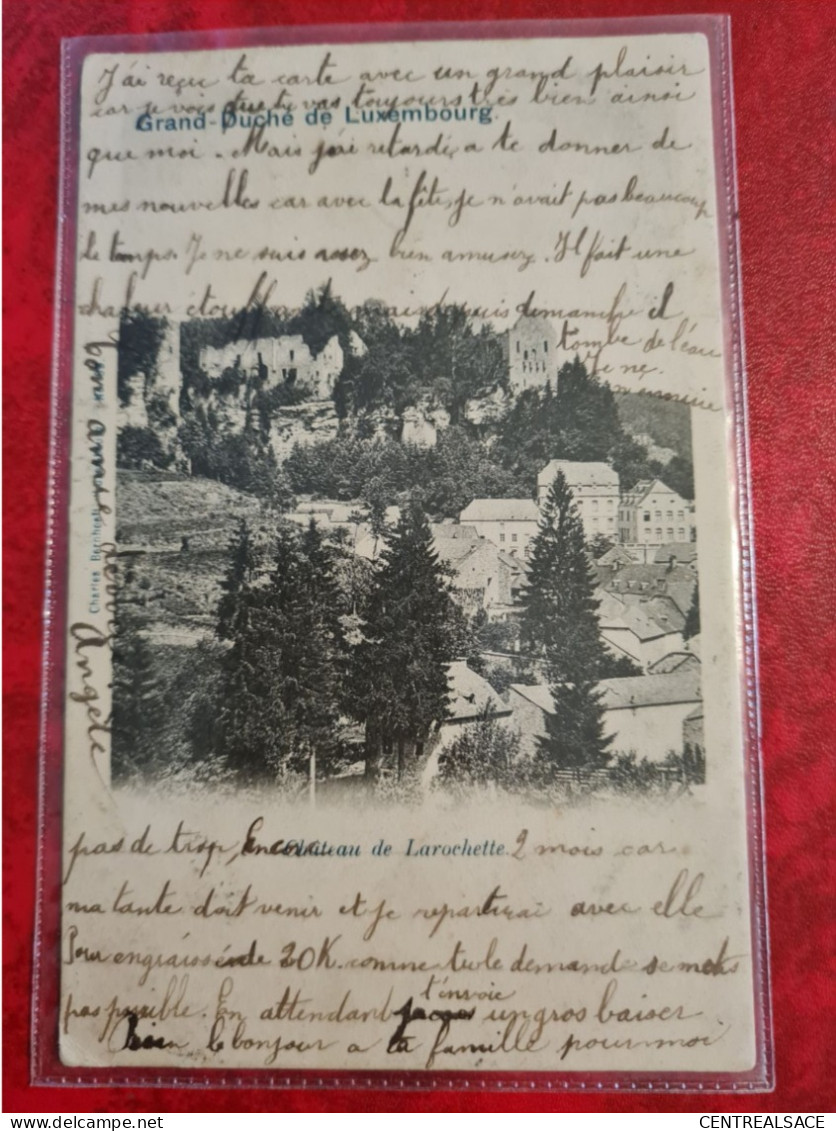 J'ai reçu ta carte avec un grand plaisir
car je vois que tu vas toujours très bien ainsi
Grand-Duché de Luxembourg
que moi. Mais j'ai retardé a te donner de
mes nouvelles car avec la fête, je n'avait pas beaucoup
le temps. Je ne suis assez bien amusez. Il fait une
chaleur étouffante mais depuis dimanche il
tombe de l'eau
Je ne
m'ennuie
pas de trop, Encore 2 mois car
Château de Larochette.
ma tante doit venir et je repartirai avec elle
Pour engraissée de 20K. comme tu le demande se mets
pas possible. En attendant je t'envoie un gros baiser
bien le bonjour a ta famille pour moi
ton amie
Angèle
Charles Bernhoeft
CENTREALSACE